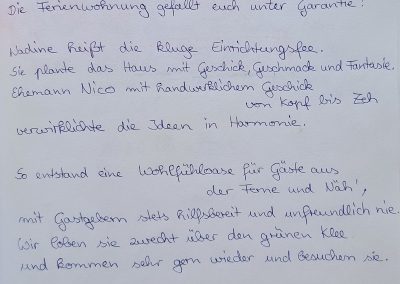 Die Ferienwohnung gefällt euch unter Garantie!
Nadine heißt die kluge Einrichtungsfee.
Sie plante das Haus mit Geschick, Geschmack und Fantasie.
Ehemann Nico mit handwerklichem Geschick
von Kopf bis Zeh
verwirklichte die Ideen in Harmonie.
So entstand eine Wohlfühloase für Gäste aus
der Ferne und Näh',
mit Gastgebern stets hilfsbereit und unfreundlich nie.
Wir loben sie zurecht über den grünen Klee
und kommen sehr gern wieder und besuchen sie.